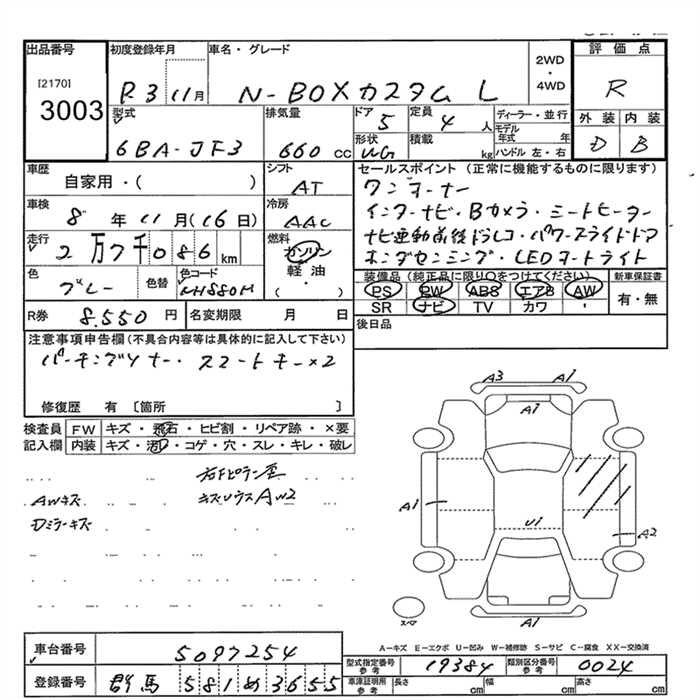 出品番号 初度登録年月 車名・グレード 評価点
[2170] 3003 R3 11月 N-BOXカスタム L 2WD ・ 4WD R
型式 排気量 ドア 定員 ディーラー・並行 外装 内装
6BA-JF3 660cc 5 4人 モデル年式 年 D B
形状 積載 kg ハンドル 左・右
WG
車歴 シフト セールスポイント(正常に機能するものに限ります)
自家用・( ) AT ワンオーナー
車検 冷房 インターナビ・Bカメラ・シートヒーター
8年 11月(16日) AAC ナビ連動前後ドラレコ・パワースライドドア
走行 燃料 ホンダセンシング・LEDオートライト
2万7千086km ガソリン
軽油
・
( )
色 色替 色コード 装備品(純正品に限り○をつけてください) 新車保証書
グレー NH880M PS PW ABS エアB AW 有・無
SR ナビ TV カワ ・
R券 8.550円 名変期限 月 日 後日品
注意事項申告欄(不具合内容等は具体的に記入して下さい)
パーキングソナー・スマートキー×2
修復歴 有〔箇所 〕
検査員 FW キズ・飛石・ヒビ割・リペア跡・×要
記入欄 内装 キズ・汚・コゲ・穴・スレ・キレ・破レ
AWキズ
Dミラーキズ
A3 A1
A1
A1
U1
A2
A1
スペア
A-キズ E-エクボ U-凹み W-補修跡 S-サビ C-腐食 XX-交換済
車台番号 5097254
型式指定番号 参考 19384 類別区分番号 参考 0024
登録番号 群馬 581 め 3655
車庫証明用 参考 長さ cm 幅 cm 高さ cm